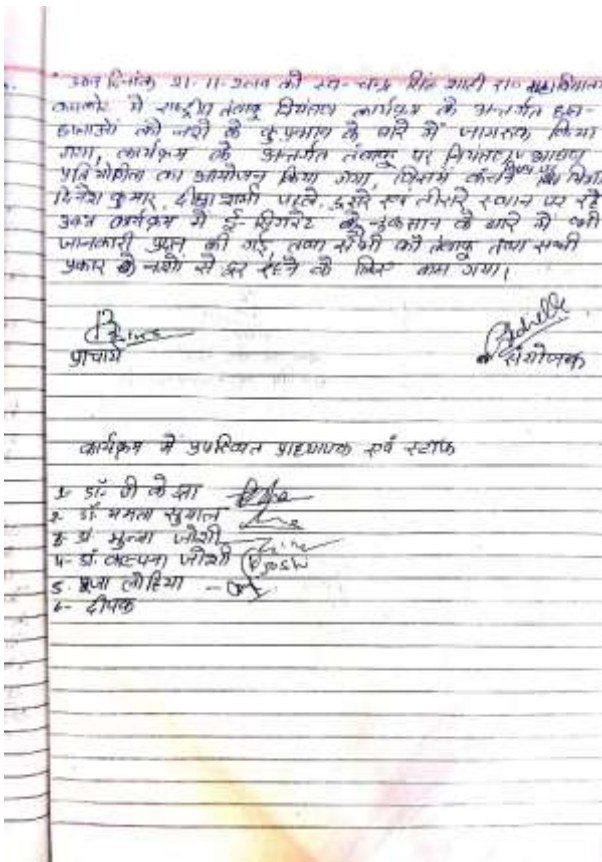 आज दिनांक 21-11-2022 को स्व- चन्द्र सिंह शाही रा० महाविद्यालय
कपकोट में राष्ट्रीय तंबाकू नियंत्रण कार्यक्रम के अन्तर्गत छात्र-
छात्राओं को नशे के कुप्रभाव के बारे में जागरूक किया
गया, कार्यक्रम के अन्तर्गत तंबाकू पर नियंत्रण भाषण
प्रतियोगिता का आयोजन किया गया, जिसमें कंचन
दिनेश कुमार, दीपा शाही पहले, दूसरे एवं तीसरे स्थान पर रहे
उक्त कार्यक्रम में ई-सिगरेट के नुकसान के बारे में भी
जानकारी प्रदान की गई तथा सभी को तंबाकू तथा सभी
प्रकार के नशों से दूर रहने के लिए कहा गया।
प्राचार्य
संयोजक
कार्यक्रम में उपस्थित प्राध्यापक एवं स्टाफ
1- डॉ- पी के झा
2- डॉ- ममता सुयाल
3- डॉ मुन्ना जोशी
4- डॉ- कल्पना जोशी
5- पूजा लोहिया
6- दीपक